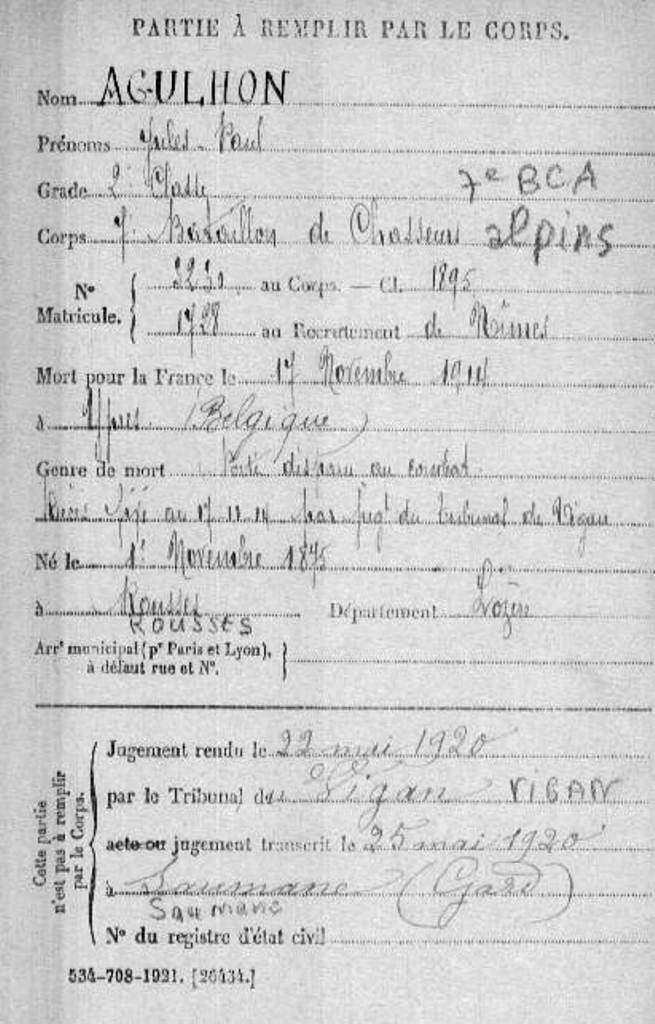 PARTIE À REMPLIR PAR LE CORPS.
Nom AGULHON
Prénoms Jules - Paul
Grade 2e Classe
7e BCA
Corps 7e Bataillon de Chasseurs alpins
N° Matricule. { 3230 au Corps. — Cl. 1895
1728 au Recrutement de Nîmes
Mort pour la France le 17 Novembre 1914
à Ypres (Belgique)
Genre de mort Porté disparu au combat
Décès fixé au 17-11-14 par jugt du tribunal de Vigan
Né le 1er Novembre 1875
à Rousses Département Lozère
ROUSSES
Arrt municipal (pr Paris et Lyon), à défaut rue et N°. }
Cette partie n'est pas à remplir par le Corps.
Jugement rendu le 22 mai 1920
par le Tribunal de Vigan VIGAN
acte ou jugement transcrit le 25 mai 1920
à Saumane (Gard)
Saumane
N° du registre d'état civil
534-708-1921. [26434.]